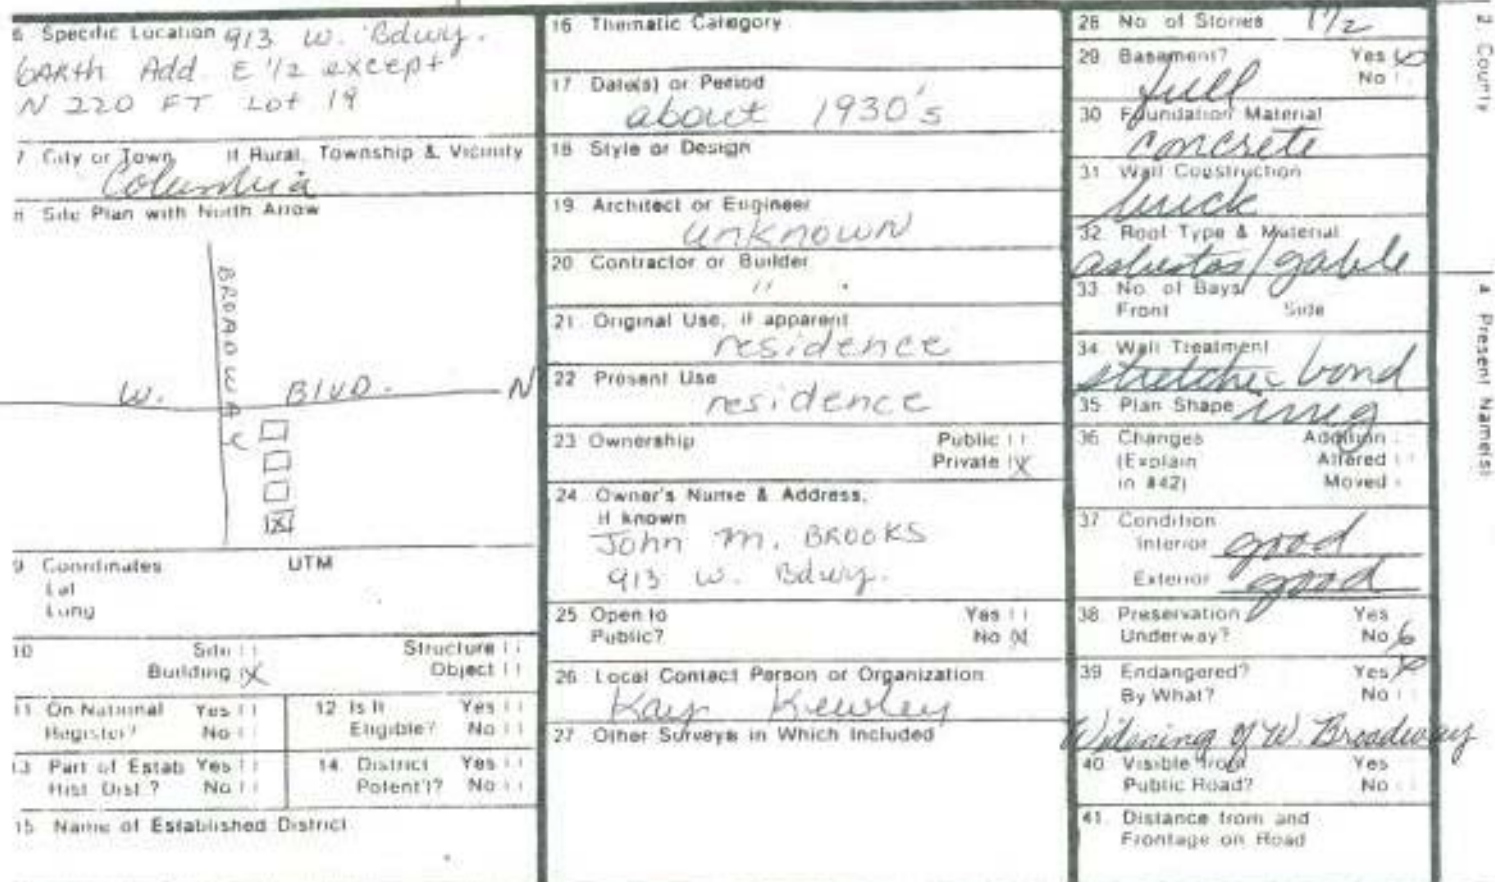 6 Specific Location 913 W. Bdwy.
GARTH Add E 1/2 except
N 220 FT Lot 19
7 City or Town If Rural, Township & Vicinity
Columbia
8 Site Plan with North Arrow
BROADWAY
W. BLVD. N
9 Coordinates UTM
Lat
Long
10 Site Structure
Building X Object
11 On National Yes
Register? No
12 Is It Yes
Eligible? No
13 Part of Estab Yes
Hist Dist ? No
14. District Yes
Potent'l? No
15 Name of Established District
16 Thematic Category
17 Date(s) or Period
about 1930's
18 Style or Design
19 Architect or Engineer
unknown
20 Contractor or Builder
"
21 Original Use, if apparent
residence
22 Present Use
residence
23 Ownership Public
Private X
24 Owner's Name & Address,
if known
John M. BROOKS
913 W. Bdwy.
25 Open to Yes
Public? No X
26 Local Contact Person or Organization
Kay Kewley
27 Other Surveys in Which Included
28 No of Stories 1 1/2
29 Basement? Yes
full No
30 Foundation Material
concrete
31 Wall Construction
brick
32 Roof Type & Material
asbestos/gable
33 No of Bays
Front Side
34 Wall Treatment
stretcher bond
35 Plan Shape irreg
36 Changes Addition
(Explain Altered
in #42) Moved
37 Condition
Interior good
Exterior good
38 Preservation Yes
Underway? No
39 Endangered? Yes X
By What? No
Widening of W. Broadway
40 Visible from Yes
Public Road? No
41. Distance from and
Frontage on Road
2. County
4 Present Name(s)